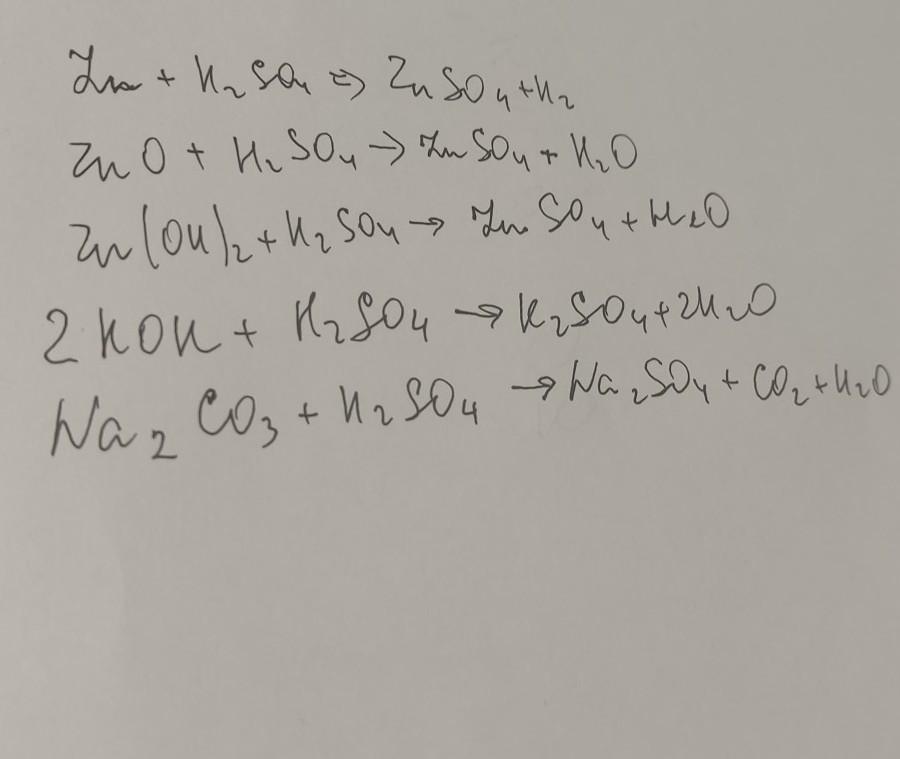 Zn + H₂SO₄ => ZnSO₄ + H₂
ZnO + H₂SO₄ → ZnSO₄ + H₂O
Zn(OH)₂ + H₂SO₄ → ZnSO₄ + H₂O
2KOH + H₂SO₄ → K₂SO₄ + 2H₂O
Na₂CO₃ + H₂SO₄ → Na₂SO₄ + CO₂ + H₂O